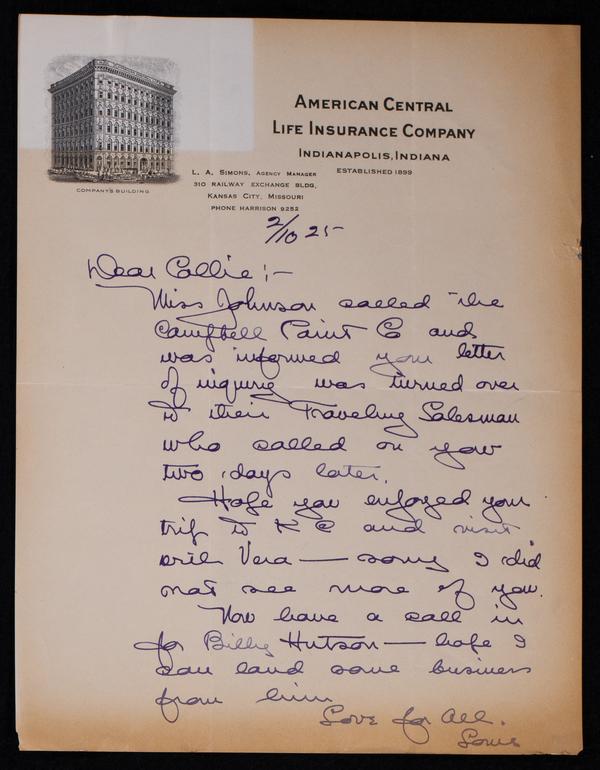 COMPANY'S BUILDING
AMERICAN CENTRAL
LIFE INSURANCE COMPANY
INDIANAPOLIS, INDIANA
ESTABLISHED 1899
L. A. SIMONS, AGENCY MANAGER
310 RAILWAY EXCHANGE BLDG,
KANSAS CITY, MISSOURI
PHONE HARRISON 9252
2/10 25-
Dear Callie:-
Miss Johnson called the
Campbell Paint Co and
was informed your letter
of inquiry was turned over
to their Traveling Salesman
who called on you
two days later.
Hope you enjoyed your
trip to K C and visit
with Vera — sorry I did
not see more of you.
Now have a call in
for Billy Hutson — hope I
can land some business
from him
Love for All.
Louis